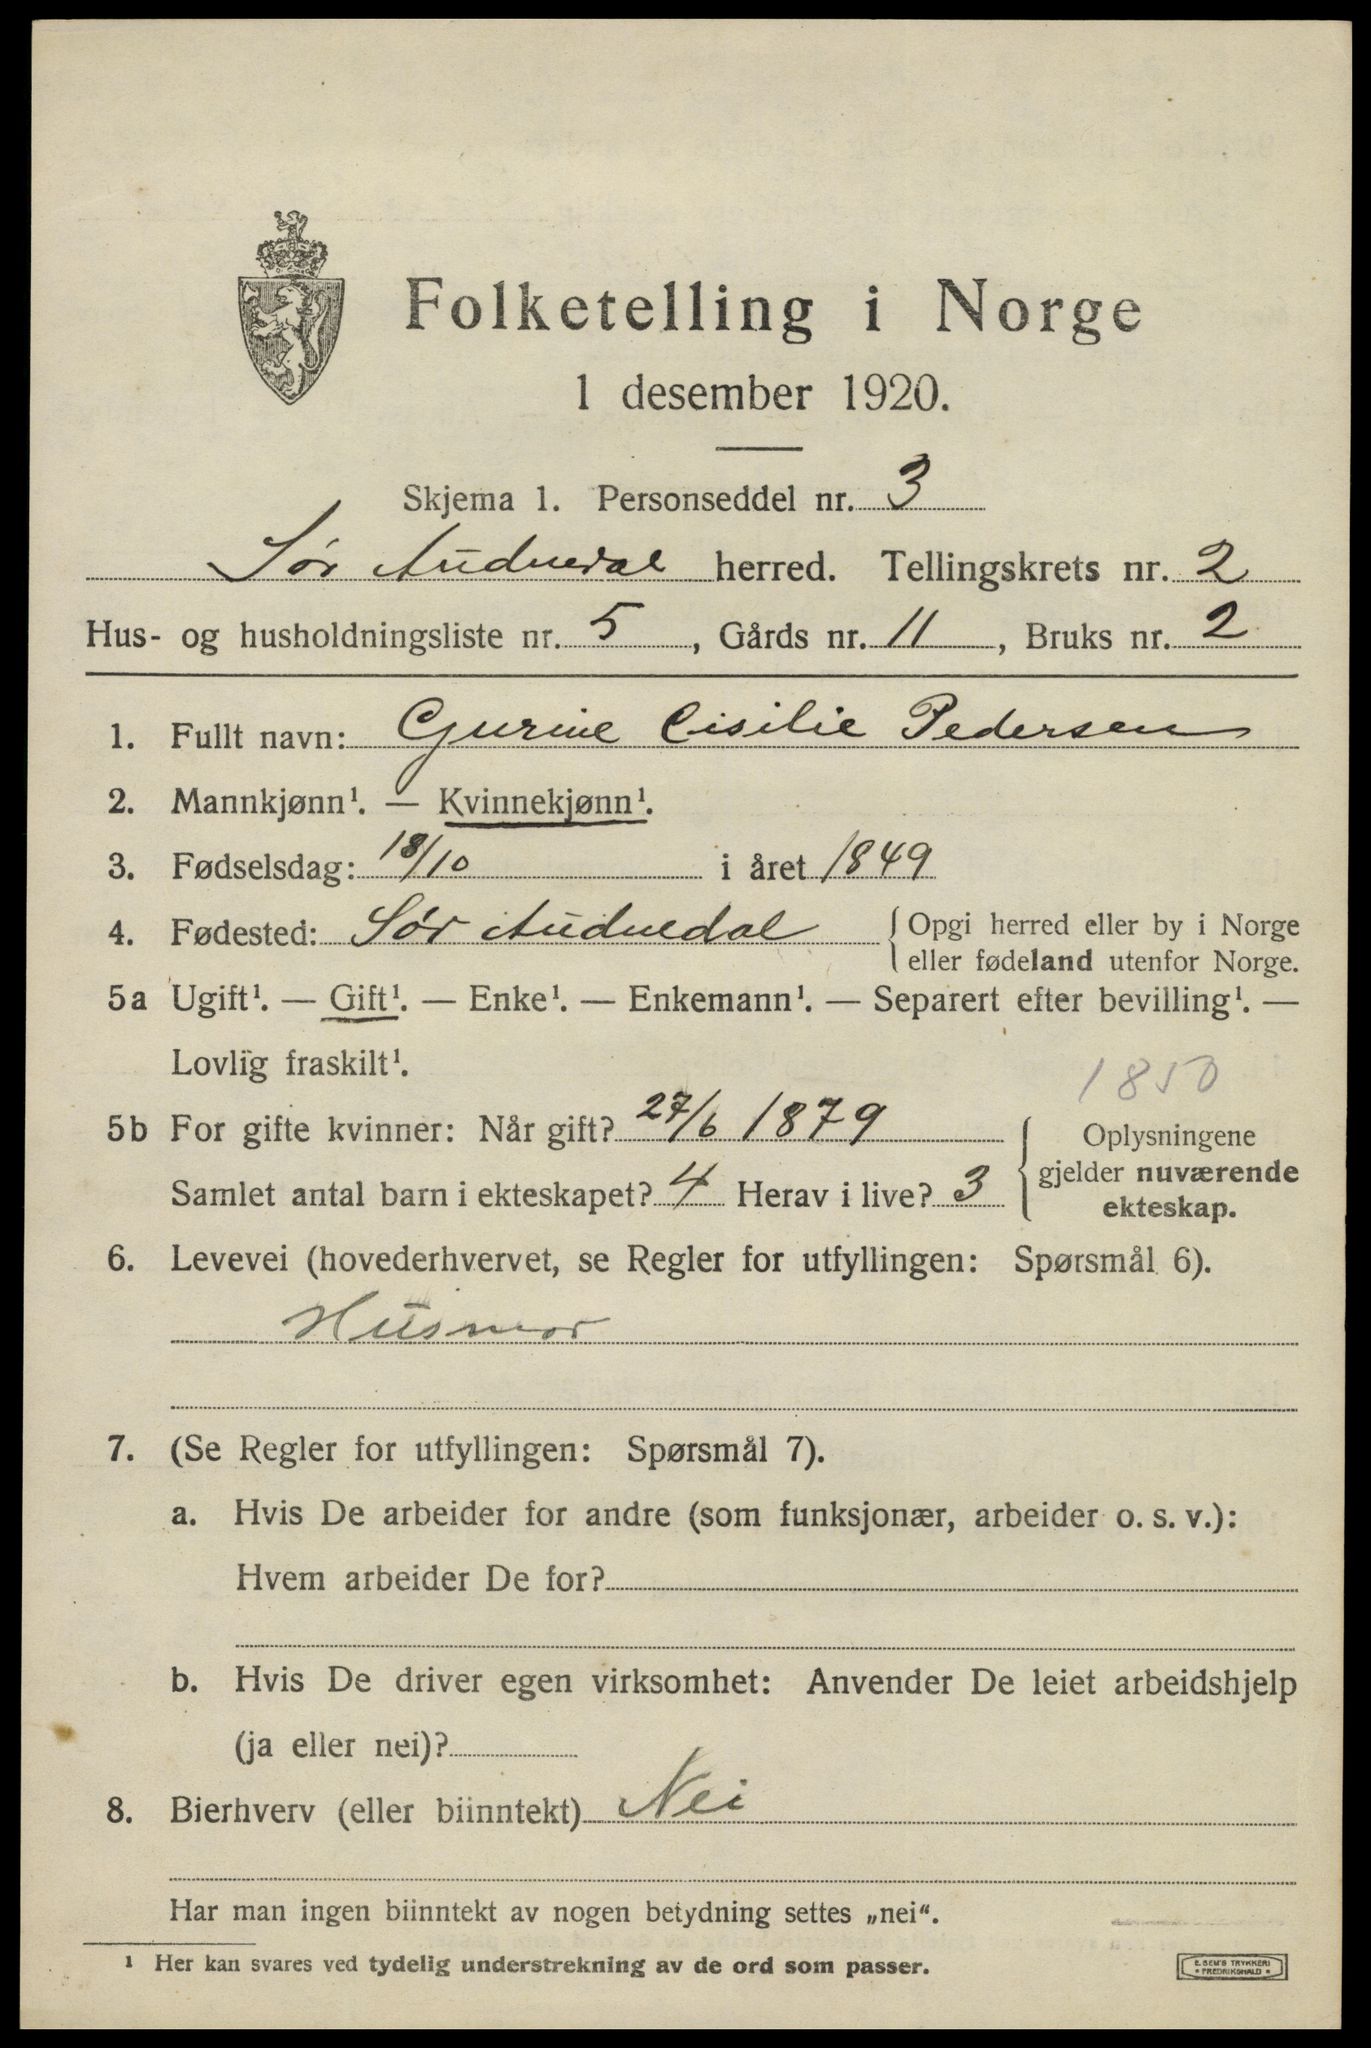 Folketelling i Norge
1 desember 1920.
Skjema 1. Personseddel nr. 3
Sør Audnedal herred. Tellingskrets nr. 2
Hus- og husholdningsliste nr. 5, Gårds nr. 11, Bruks nr. 2
1. Fullt navn: Gurine Cisilie Pedersen
2. Mannkjønn¹. — Kvinnekjønn¹.
3. Fødselsdag: 18/10 i året 1849
4. Fødested: Sør Audnedal { Opgi herred eller by i Norge
eller fødeland utenfor Norge.
5a Ugift¹. — Gift¹. — Enke¹. — Enkemann¹. — Separert efter bevilling¹. —
Lovlig fraskilt¹.
1850
5b For gifte kvinner: Når gift? 27/6 1879
Samlet antal barn i ekteskapet? 4 Herav i live? 3
{ Oplysningene
gjelder nuværende
ekteskap.
6. Levevei (hovederhvervet, se Regler for utfyllingen: Spørsmål 6).
Husmor
7. (Se Regler for utfyllingen: Spørsmål 7).
a. Hvis De arbeider for andre (som funksjonær, arbeider o. s. v.):
Hvem arbeider De for?
b. Hvis De driver egen virksomhet: Anvender De leiet arbeidshjelp
(ja eller nei)?
8. Bierhverv (eller biinntekt) Nei
Har man ingen biinntekt av nogen betydning settes „nei“.
¹ Her kan svares ved tydelig understrekning av de ord som passer.
E. SEM'S TRYKKERI
• FREDRIKSHALD •